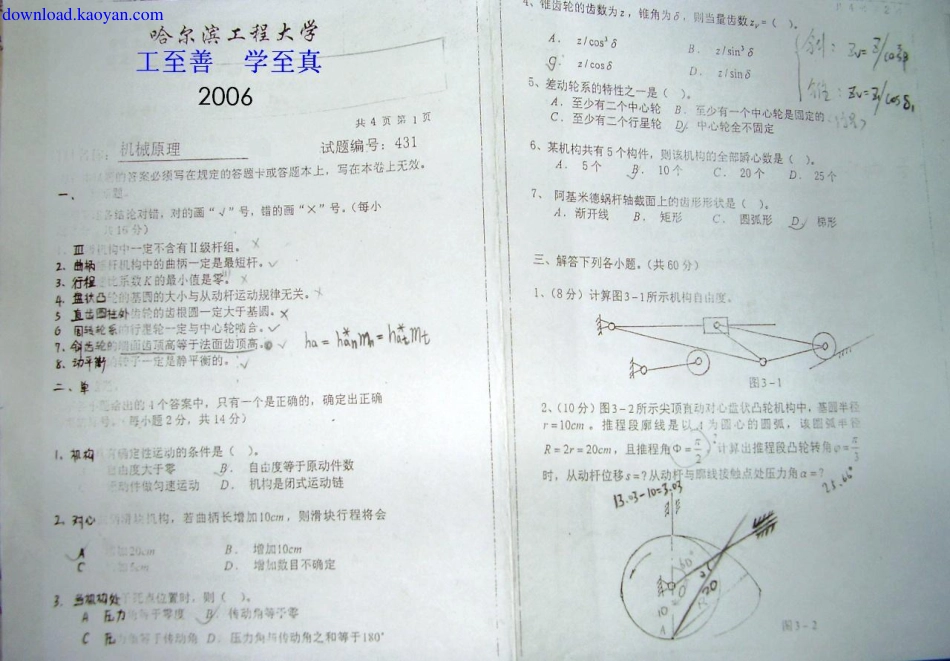 download.kaoyan.com
哈尔滨工程大学
工至善 学至真
2006
共 4 页 第 1 页
机械原理 试题编号：431
的答案必须写在规定的答题卡或答题本上，写在本卷上无效。
一、
结论对错，对的画“√”号，错的画“×”号。（每小
共16分）
Ⅲ 机构中一定不含有Ⅱ级杆组。 ×
2. 曲柄 杆机构中的曲柄一定是最短杆。√
3. 行程 系数K的最小值是零。×
4. 盘状凸轮的基圆的大小与从动杆运动规律无关。×
5 直齿圆柱外齿轮的齿根圆一定大于基圆。×
6 周转轮系的行星轮一定与中心轮啮合。√
7. 斜齿轮的端面齿顶高等于法面齿顶高。√ ha = h*an mn = h*at mt
8. 动平衡的转子一定是静平衡的。√
二、单
给出的4个答案中，只有一个是正确的，确定出正确
每小题2分，共14分）
1. 机构 有确定性运动的条件是（ ）。
自由度大于零 B. 自由度等于原动件数
原动件做匀速运动 D. 机构是闭式运动链
2. 对心 滑块机构，若曲柄长增加10cm，则滑块行程将会
A 增加20cm B. 增加10cm
C 增加5cm D. 增加数目不确定
3. 当机构处于死点位置时，则（ ）。
A 压力角等于零度 B. 传动角等于零
C 压力角等于传动角 D. 压力角与传动角之和等于180°
4、锥齿轮的齿数为z，锥角为δ，则当量齿数zv=（ ）。
A. z/cos³δ B. z/sin³δ
C. z/cosδ D. z/sinδ
斜：Zv=Z/cos³β
锥：Zv=Z/cosδ1
5、差动轮系的特性之一是（ ）。
A. 至少有二个中心轮 B. 至少有一个中心轮是固定的
C. 至少有二个行星轮 D. 中心轮全不固定
6、某机构共有5个构件，则该机构的全部瞬心数是（ ）。
A. 5个 B. 10个 C. 20个 D. 25个
7、 阿基米德蜗杆轴截面上的齿形形状是（ ）。
A. 渐开线 B. 矩形 C. 圆弧形 D. 梯形
三、解答下列各小题。（共60分）
1、（8分）计算图3-1所示机构自由度。
图3-1
2、（10分）图3-2所示尖顶直动对心盘状凸轮机构中，基圆半径
r=10cm。推程段廓线是以A为圆心的圆弧，该圆弧半径
R=2r=20cm，且推程角Φ=π/2，计算出推程段凸轮转角φ=π/3
时，从动杆位移s=?从动杆与廓线接触点处压力角α=?
13.03-10=3.03
60°
20
10
O
R
A
图3-2